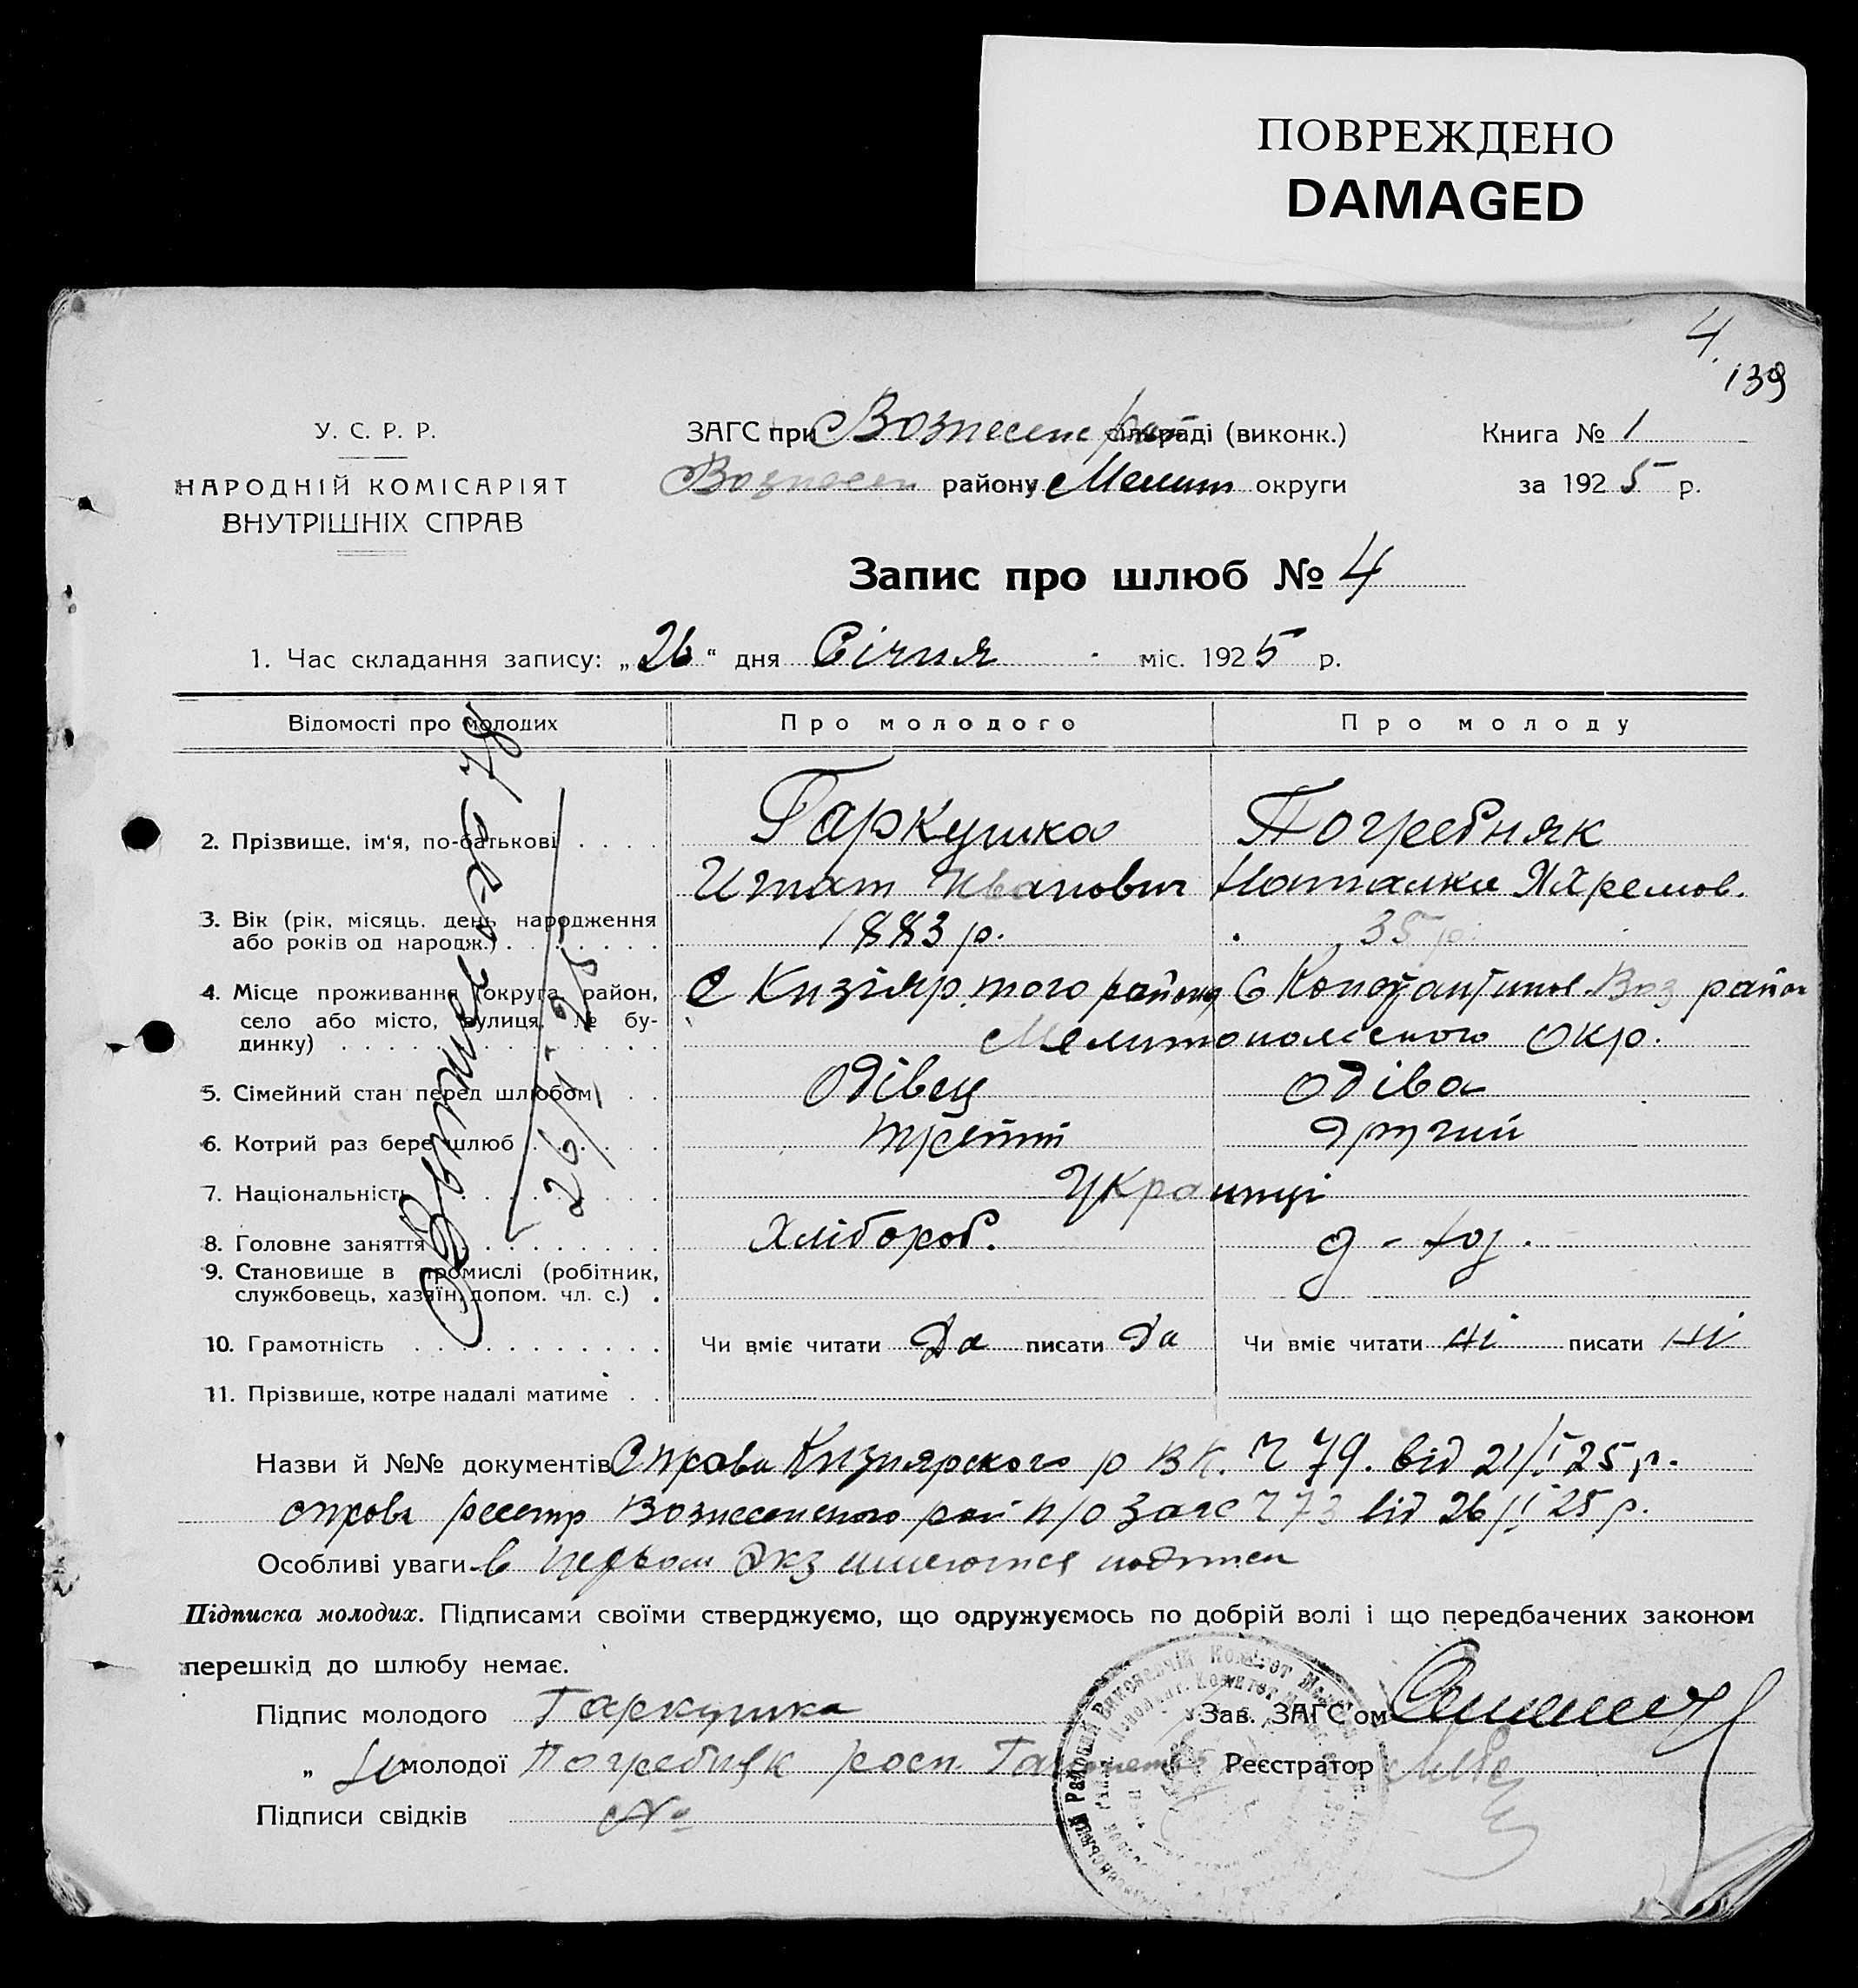 ПОВРЕЖДЕНО
DAMAGED
4.
139
У. С. Р. Р.
НАРОДНІЙ КОМІСАРІЯТ
ВНУТРІШНІХ СПРАВ
ЗАГС при Вознесенс рай сільраді (виконк.)
Вознесен району Мелит округи
Книга № 1
за 1925 р.
Запис про шлюб № 4
1. Час складання запису: „26“ дня Січня міс. 1925 р.
Відомості про молодих
Про молодого
Про молоду
2. Прізвище, ім'я, по-батькові . . . .
Гаркушка
Погребняк
Ипат Иванович
Наталка Яхремов.
3. Вік (рік, місяць, день народження
або років од народж.) . . . . . . .
1883 р.
35 р.
4. Місце проживання (округа, район,
село або місто, вулиця, № бу-
динку) . . . . . . . . . . . .
С Кизіяр того району
С Константинов. Воз район
Мелитопольского Окр.
5. Сімейний стан перед шлюбом . .
Одівец
Одіва
6. Котрий раз бере шлюб . . . . .
третіт
другий
7. Національність . . . . . . . .
Украинці
8. Головне заняття . . . . . . . .
Хлібороб.
д - хоз.
9. Становище в промислі (робітник,
службовець, хазяїн, допом. чл. с.) .
10. Грамотність . . . . . . . . . .
Чи вміє читати Да писати Да
Чи вміє читати Ні писати Ні
11. Прізвище, котре надалі матиме . .
№ 78
26/I 25
Назви й №№ документів Справа Кизиярского р В К. Ч 79. від 21/I 25 р.
справа реестр Вознесенского рай п/о Загс Ч 73 від 26/I 25 р.
Особливі уваги в первом Экз имеются подписи
Підписка молодих. Підписами своїми стверджуємо, що одружуємось по добрій волі і що передбачених законом
перешкід до шлюбу немає.
Підпис молодого Гаркушка
Зав. ЗАГС'ом
„ молодої Погребняк росп.
Реєстратор
Підписи свідків
Районний Виконавчий Комітет